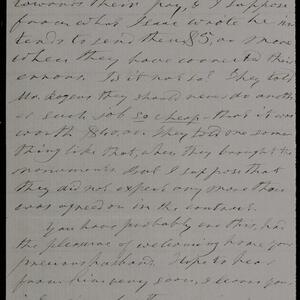 towards their pay, & I suppose
from what Isaac wrote he in-
tends to send them $5, or more
when they have corrected their
errors. Is it not so? They told
Mr. Rogers they should never do another
such job so cheap – that it was
worth $40.00. They told me some
thing like that, when they brought the
monuments. But I suppose that
they did not expect any more than
was agreed on in the contract.
You have probably ere this, had
the pleasure of welcoming home your
precious husband. Hope to hear
from him very soon,